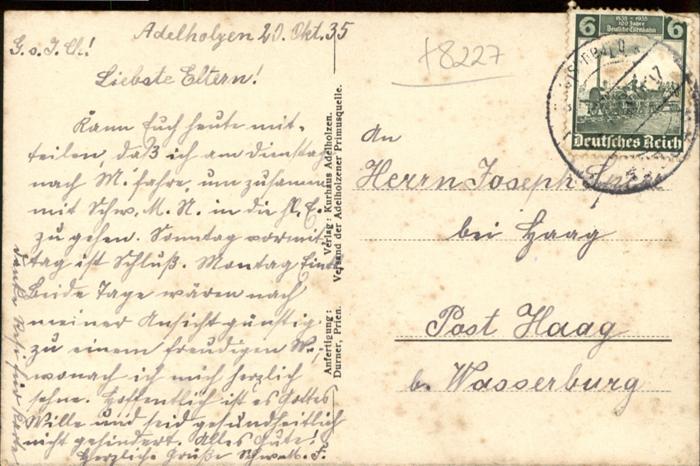 Adelholzen 20. Okt. 35
G. s. J. Ch.!
Liebste Eltern!
Kann Euch heute mit-
teilen, daß ich am Dienstag
nach M. fahre, um zusammen
mit Schw. M. N. in die hl. E.
zu gehen. Sonntag vormit-
tag ist Schluß. Montag Ende
Beide Tage wären nach
meiner Ansicht günstig
zu einem freudigen
wonach ich mich herzlich
sehne. Hoffentlich ist es Gottes
Wille und seid gesundheitlich
nicht gehindert. Alles Gute!
Herzliche Grüße Schw.
für Karte
Verlag: Kurhaus Adelholzen.
Versand der Adelholzener Primusquelle.
Anfertigung:
Durner, Prien.
+8227
6 1835-1935 6
100 Jahre
Deutsche Eisenbahn
Deutsches Reich
An
Herrn Joseph
bei Haag
Post Haag
b. Wasserburg